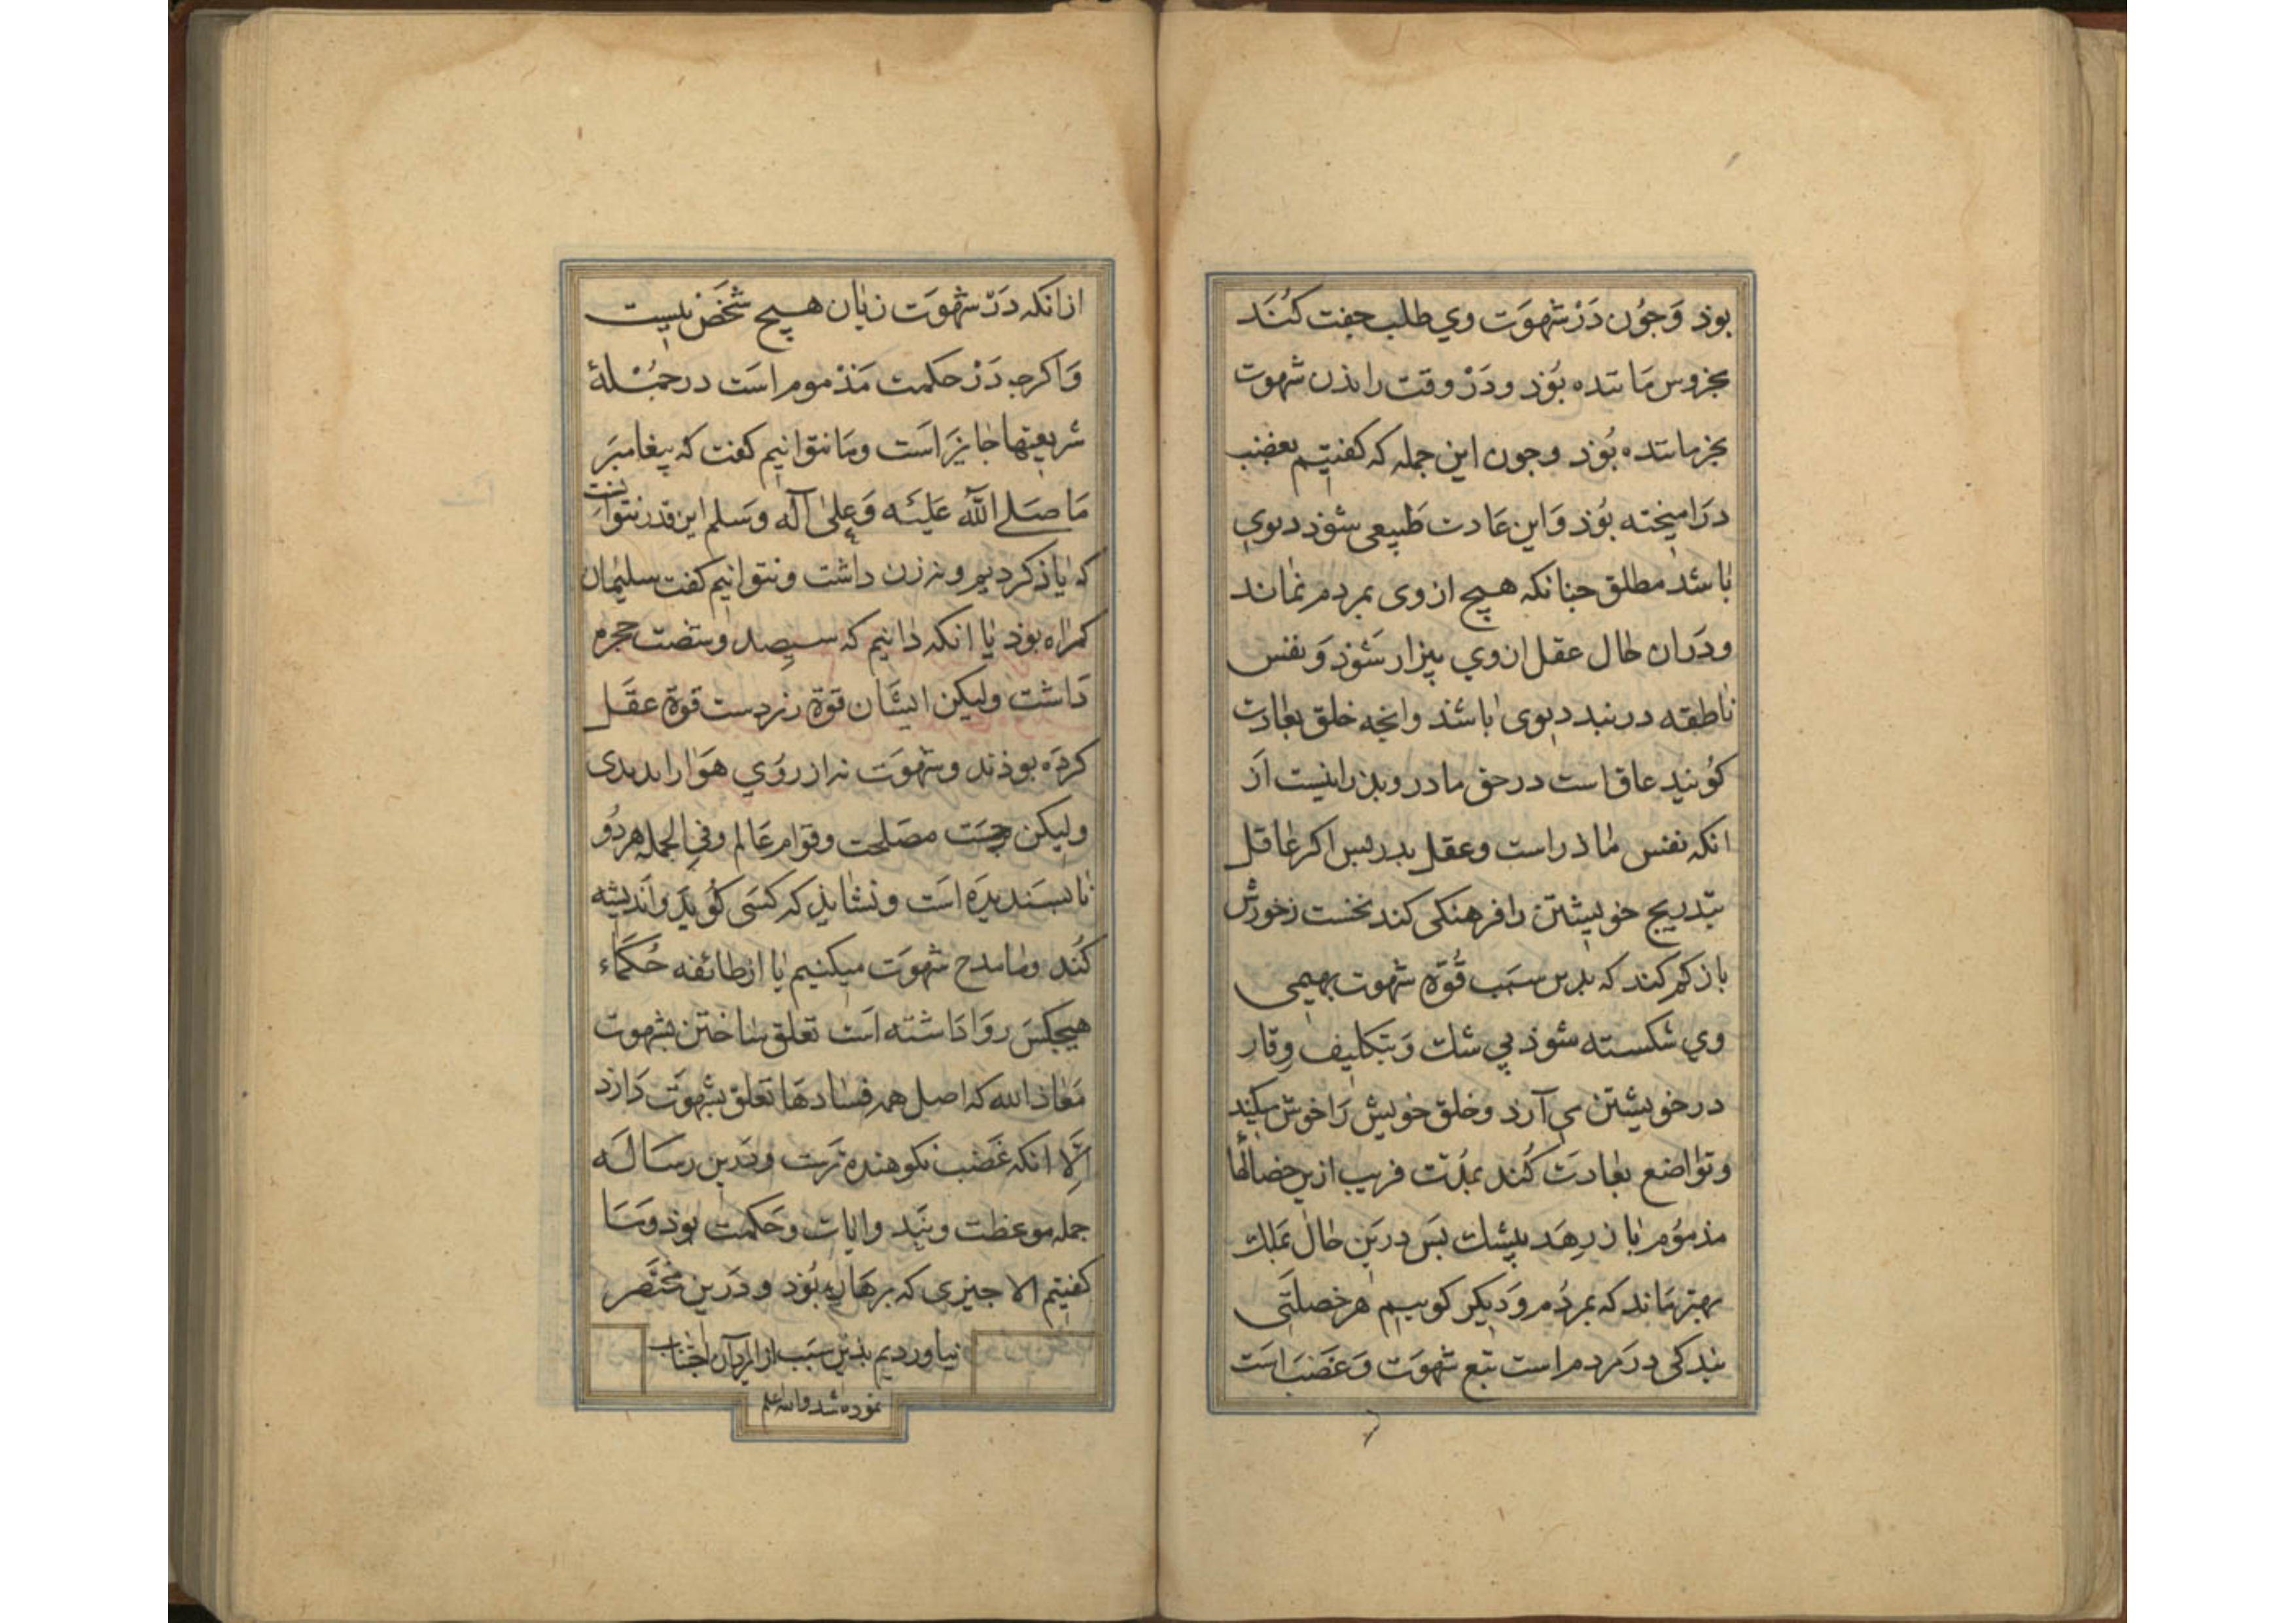 بوذ وَجوُن دَرْ شهوَت وي طلب جفت كُنَد
بخروس مَاننده بُوَذ ودَرْ وقت راندن شهوت
بخرماننده بُوَذ وجون اين جمله كه كفتيم بعضب
دراميخته بُوَذ وَاين عَادت طَبيعى شوَذ ديوى
باشد مطلق جنانكه هيچ از وى بمردم نماند
ودَران حال عقل از وي بيزار شوَذ وَنفس
ناطقه در بند ديوى باشذ وانجه خلق بعادت
كُويند عاق است در حق مادر وپذر اينست اَز
انكه نفس ماذر است وعقل پدر پس اكر عاقل
بتدريج خويشتن را فرهنكى كند نخست زخورش
باز كم كند كه بدين سبَب قُوّة شهوت بهيمى
وي شكسته شوذ بي شك وَبتكليف وقار
در خويشتن مى آرذ وخلق خويش رَا خوش ميكند
وتواضع بعادت كُند بمدّت قريب ازين خصالها
مذموُم باز رهَد بيشك پَس درين حال بملك
بهتر ماند كه بمردُم وَديكر كوييم هر خصلتى
بندكى در مردم است تبع شهوَت وَغضَب است
از انكه دَرْ شهوَت زيان هيچ شخَص نيست
وَاكرجه دَرْ حكمت مَذْموم است در جمُلهٔ
شريعتها جايز اَست ومَا نتوانيم كفت كه پيغامبَر
مَا صَلى اللّٰه عَليْه وَعلىٰ آله وَسلم اين قدر نتوانست
كه ياذ كرديم ونه زن داشت ونتوانيم كفت سليمان
كمراه بوذ يا انكه دانيم كه سيصد وشصت حجره
دَاشت وليكن ايشان قوّة زبردست قوّة عقل
كردَه بوذند وشهوَت نه از روُي هَوا راندندى
وليكن جهت مصَلحت وقوام عَالم وفي الجمله هردُو
ناپسَنديدَه است ونشايذ كه كسَى كوُيَد وانديشه
كُند وما مدح شهوَت ميكنيم يا از طائفه حُكمَاء
هيچكس روَا دَاشته است تعلق ساختن بشهوت
مَعاذ الله كه اصل همه فسَادهَا تعلق بشهوَت دَارَد
اِلّا انكه غَضَب نكوهنده ترست ودرين رسَالَه
جمله موعظت وپند وايات وحَكمت بوذ ومَا
كفتيم الا جيزى كه برهان بُوَذ ودَرين مختَصَر
نياورديم بدين سَبَب از ايراد آن اجتناب
نموده شد والله اعلم